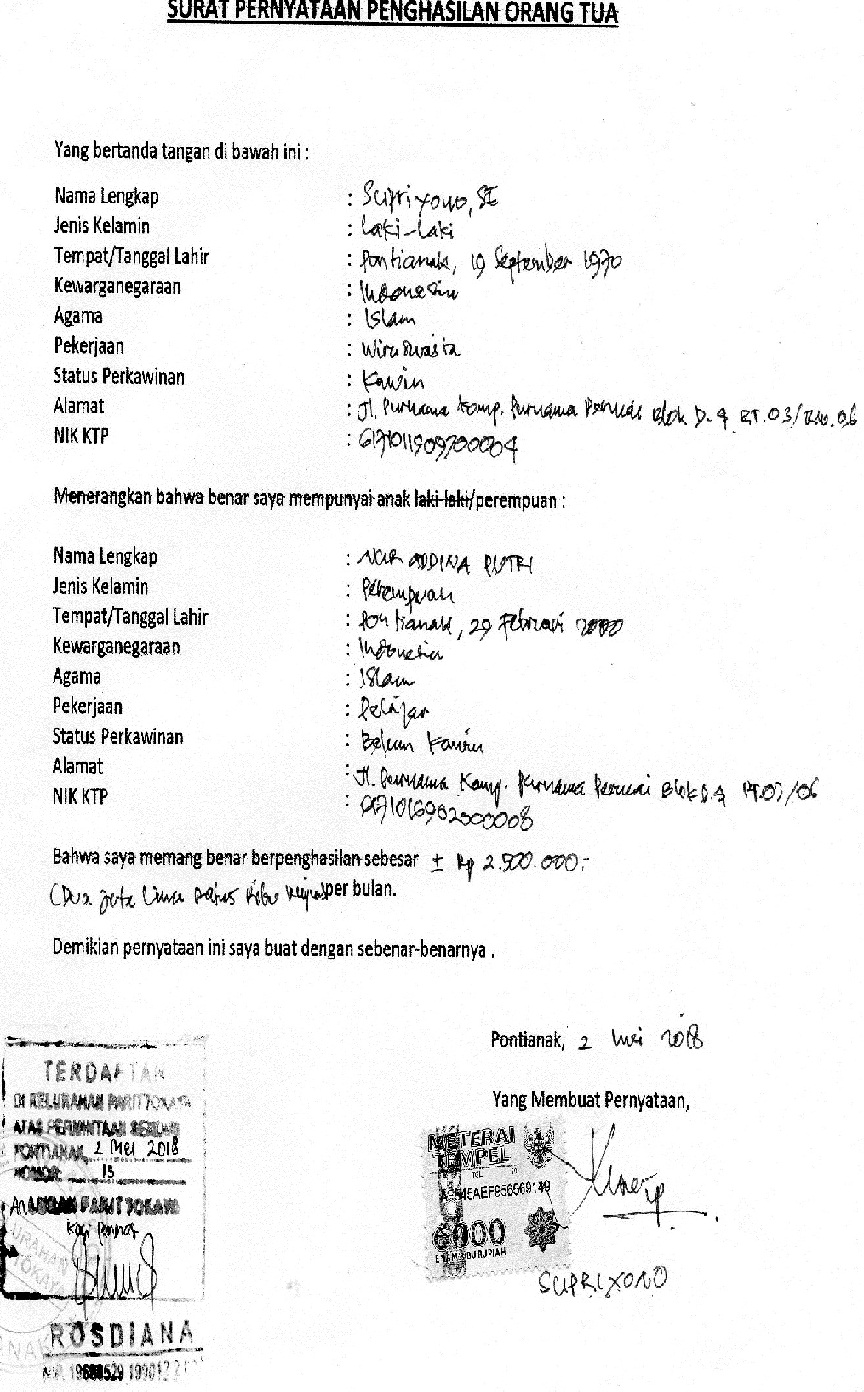 SURAT PERNYATAAN PENGHASILAN ORANG TUA
Yang bertanda tangan di bawah ini :
Nama Lengkap : Supriyono, SE
Jenis Kelamin : Laki-Laki
Tempat/Tanggal Lahir : Pontianak, 19 September 1970
Kewarganegaraan : Indonesia
Agama : Islam
Pekerjaan : Wiraswasta
Status Perkawinan : Kawin
Alamat : Jl. Purnama Komp. Purnama Permai Blok D. 9 RT.03/RW.06
NIK KTP : 6171011909700004
Menerangkan bahwa benar saya mempunyai anak laki-laki/perempuan :
Nama Lengkap : NUR ADDINA PUTRI
Jenis Kelamin : Perempuan
Tempat/Tanggal Lahir : Pontianak, 29 Februari 2000
Kewarganegaraan : Indonesia
Agama : Islam
Pekerjaan : Pelajar
Status Perkawinan : Belum Kawin
Alamat : Jl. Purnama Komp. Purnama Permai Blok D.9 RT.03/06
NIK KTP :
Bahwa saya memang benar berpenghasilan sebesar ± Rp 2.500.000,-
(Dua juta lima ratus ribu rupiah per bulan.
Demikian pernyataan ini saya buat dengan sebenar-benarnya .
Pontianak, 2 Mei 2018
Yang Membuat Pernyataan,
TERDAFTAR
DI KELURAHAN PARIT TOKAYA
ATAS PERMINTAAN SENDIRI
PONTIANAK, 2 Mei 2018
NOMOR: 15
PARIT TOKAYA
METERAI
TEMPEL
TGL
6000
ENAM RIBU RUPIAH
SUPRIYONO
ROSDIANA